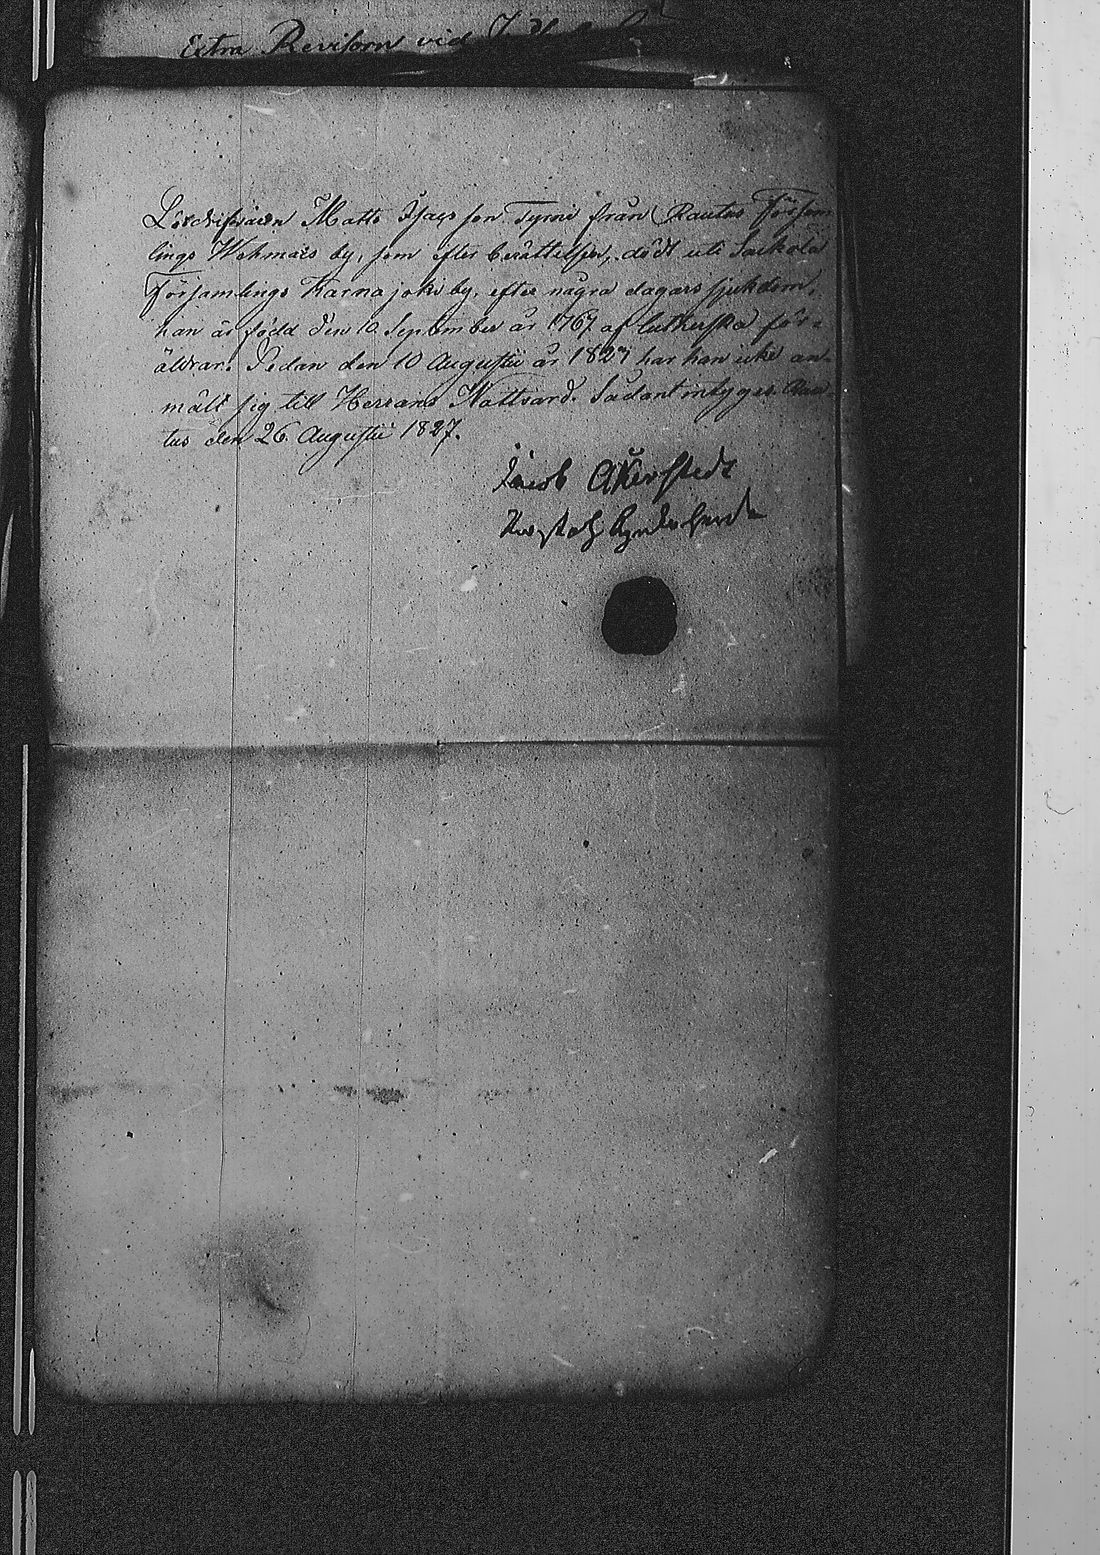 Extra Revisorn vid
Matts Isacs son Tyrni från Rautus Försam
lings Wehmais by, som efter berättelsen, dödt uti Sackola
Församlings Harnajoki by, efter några dagars sjukdom,
han är född den 10 September år 1767 af lutherska för-
äldrar. Sedan den 10 Augustii år 1827 har han icke an-
mält sig till Herrans Nattvard. Sådant intygar Rau-
tus den 26 Augustii 1827.
Jacob Åkerstedt